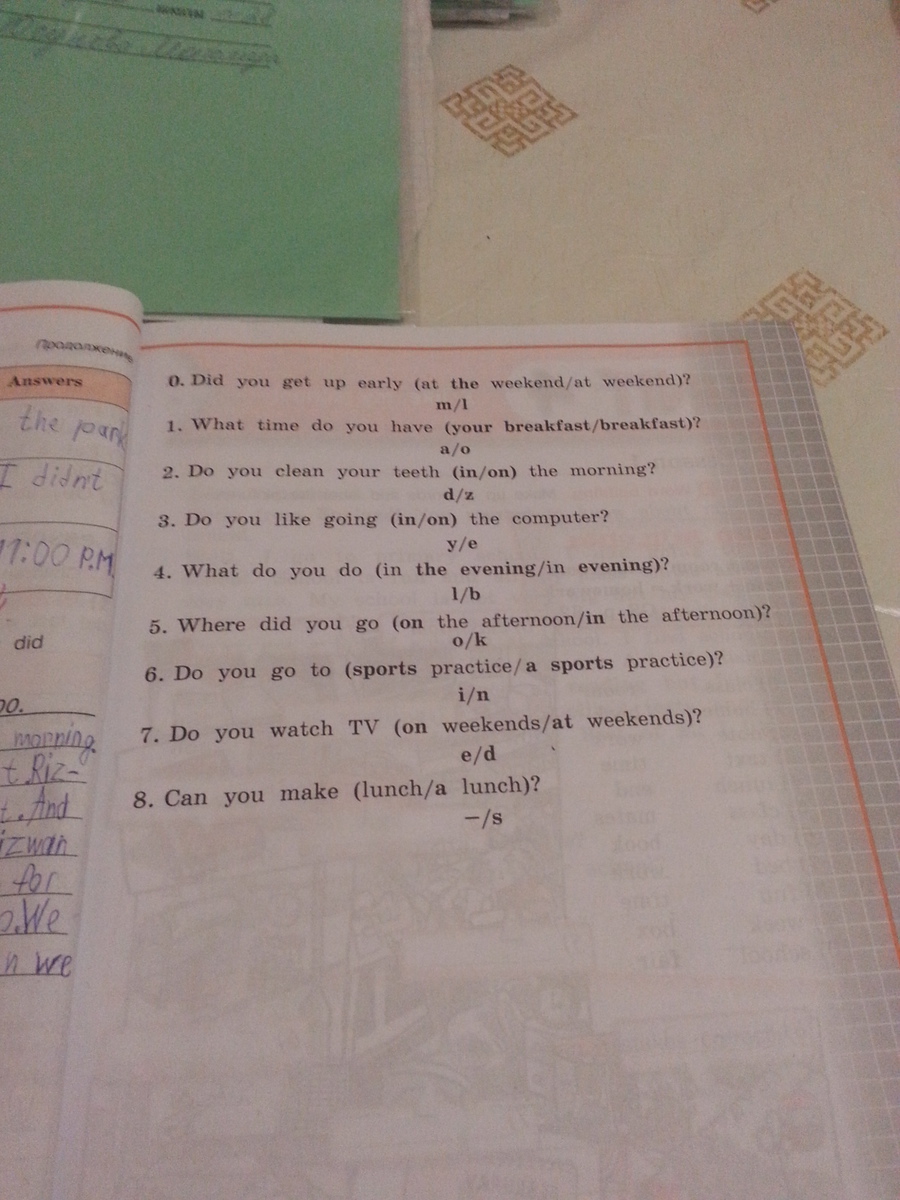 Продолжение
Answers
the park
I didn't
11:00 P.M.
did
morning.
t Riz-
t. And
izwan
for
o. We
n we
0. Did you get up early (at the weekend/at weekend)?
m/l
1. What time do you have (your breakfast/breakfast)?
a/o
2. Do you clean your teeth (in/on) the morning?
d/z
3. Do you like going (in/on) the computer?
y/e
4. What do you do (in the evening/in evening)?
l/b
5. Where did you go (on the afternoon/in the afternoon)?
o/k
6. Do you go to (sports practice/a sports practice)?
i/n
7. Do you watch TV (on weekends/at weekends)?
e/d
8. Can you make (lunch/a lunch)?
–/s